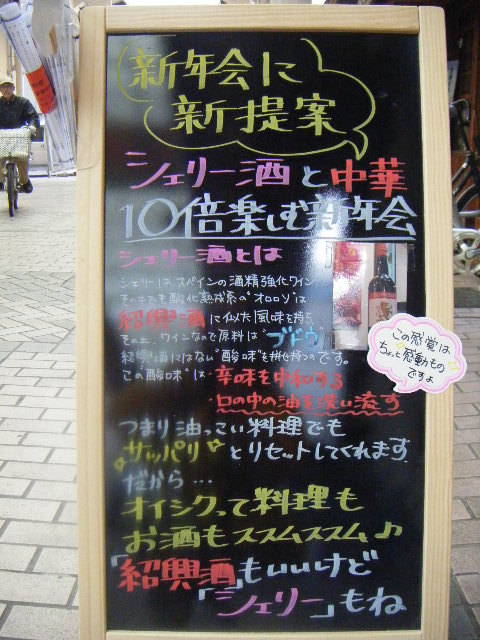 新年会に
新提案
シェリー酒と中華
10倍楽しむ新年会
シェリー酒とは
シェリーは、スペインの酒精強化ワイン
その中でも酸化熟成系の"オロロソ"は
紹興酒に似た風味を持ち
その上、ワインなので原料は"ブドウ"
紹興酒にはない"酸味"を併せ持つのです。
この"酸味"は・辛味を中和する
・口の中の油を洗い流す
この感覚は
ちょっと感動もの
ですよ
つまり油っこい料理でも
サッパリとリセットしてくれます
だから…
オイシクって料理も
お酒もススムススム♪
「紹興酒」もいいけど
「シェリー」もね